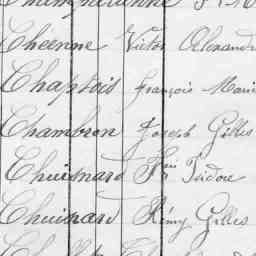 Cheenne Victor Alexandr
Chaptois François Marie
Chambron Joseph Gilles
Chuisnard Fçois Isidore
Chuisnard Rémy Gilles